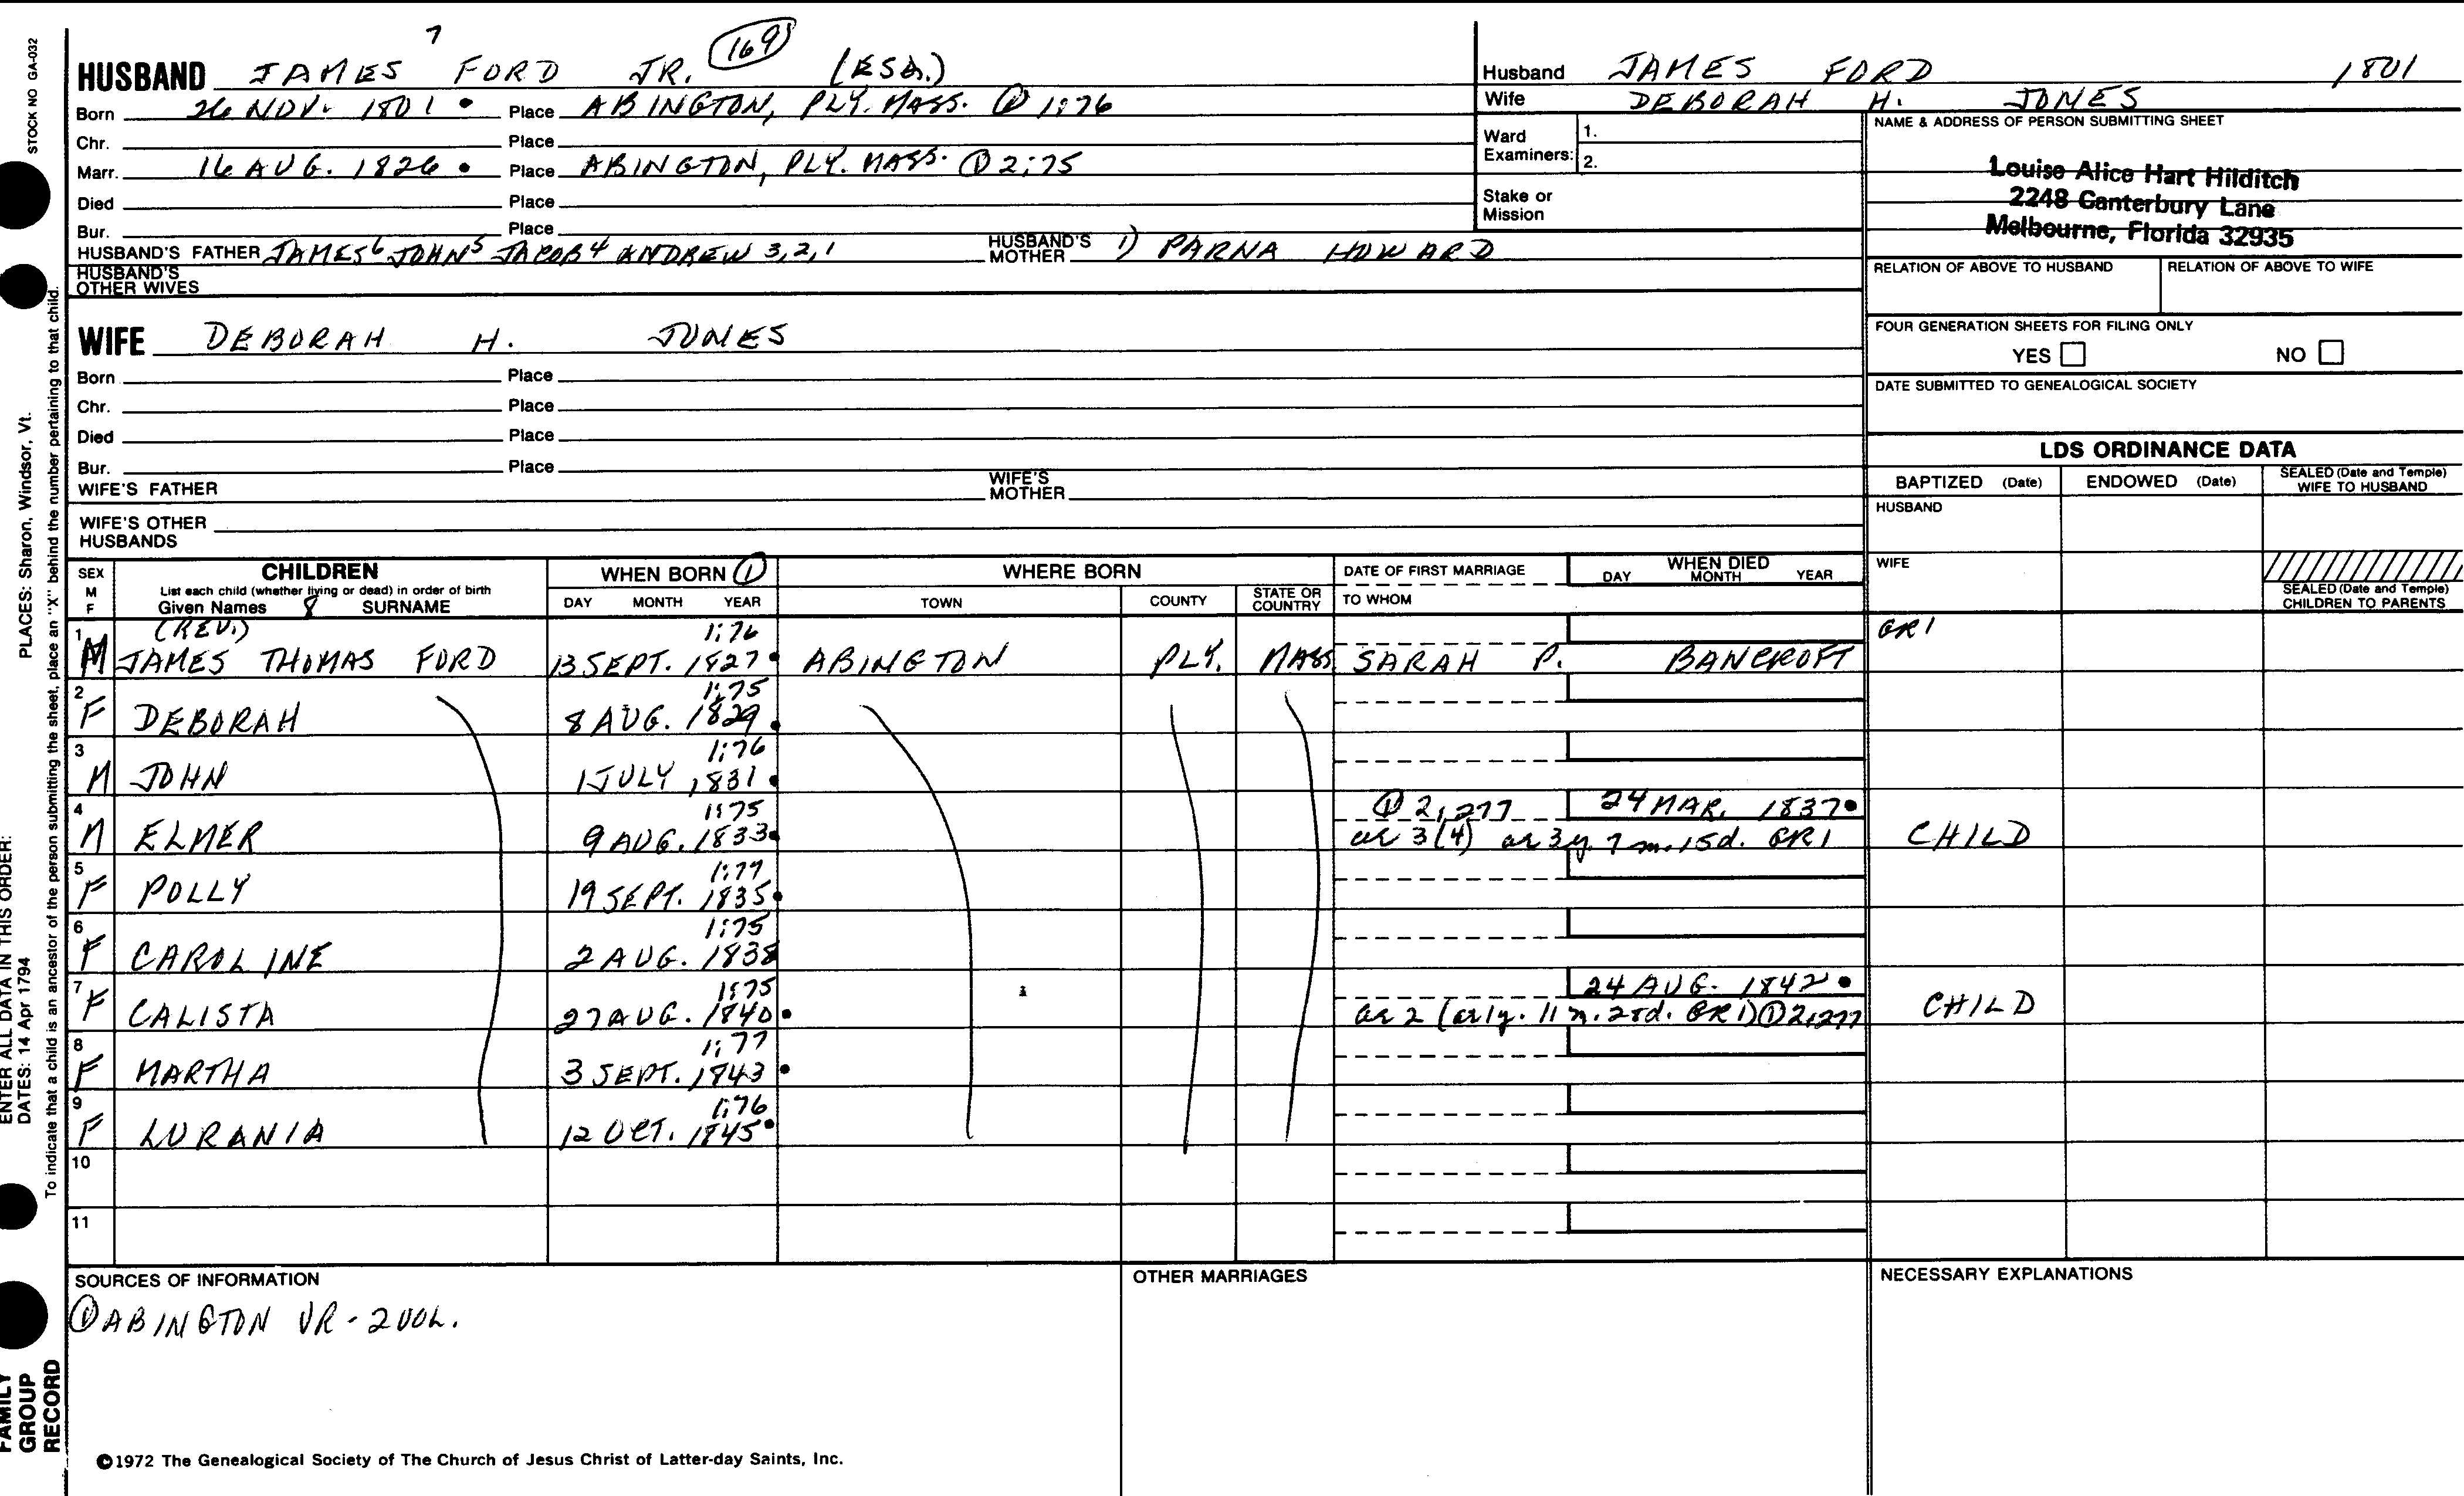 7
HUSBAND JAMES FORD JR. 169 (ESQ.)
Born 26 NOV. 1801 • Place ABINGTON, PLY. MASS. ① 1:76
Chr. Place
Marr. 16 AUG. 1826 • Place ABINGTON, PLY. MASS. ① 2:75
Died Place
Bur. Place
HUSBAND'S FATHER JAMES⁶ JOHN⁵ JACOB⁴ ANDREW 3,2,1 HUSBAND'S MOTHER 1) PARNA HOWARD
HUSBAND'S OTHER WIVES
WIFE DEBORAH H. JONES
Born Place
Chr. Place
Died Place
Bur. Place
WIFE'S FATHER WIFE'S MOTHER
WIFE'S OTHER HUSBANDS
Husband JAMES FORD 1801
Wife DEBORAH H. JONES
Ward Examiners: 1.
2.
Stake or Mission
NAME & ADDRESS OF PERSON SUBMITTING SHEET
Louise Alice Hart Hilditch
2248 Canterbury Lane
Melbourne, Florida 32935
RELATION OF ABOVE TO HUSBAND RELATION OF ABOVE TO WIFE
FOUR GENERATION SHEETS FOR FILING ONLY
YES NO
DATE SUBMITTED TO GENEALOGICAL SOCIETY
LDS ORDINANCE DATA
BAPTIZED (Date) ENDOWED (Date) SEALED (Date and Temple) WIFE TO HUSBAND
HUSBAND
WIFE
SEALED (Date and Temple) CHILDREN TO PARENTS
SEX M F CHILDREN WHEN BORN ① WHERE BORN DATE OF FIRST MARRIAGE WHEN DIED
List each child (whether living or dead) in order of birth DAY MONTH YEAR
Given Names 8 SURNAME DAY MONTH YEAR TOWN COUNTY STATE OR COUNTRY TO WHOM
1 (REV.) 1:76 GR1
M JAMES THOMAS FORD 13 SEPT. 1827 • ABINGTON PLY. MASS SARAH P. BANCROFT
2 1:75
F DEBORAH 8 AUG. 1829 •
3 1:76
M JOHN 1 JULY 1831 •
4 1:75 ① 2,277 24 MAR. 1837 •
M ELMER 9 AUG. 1833 • ae 3 (4) ae 3y. 7 m. 15d. GR1 CHILD
5 1:77
F POLLY 19 SEPT. 1835 •
6 1:75
F CAROLINE 2 AUG. 1838
7 1:75 24 AUG. 1842 •
F CALISTA 27 AUG. 1840 • ae 2 (ae 1y. 11 m. 28d. GR1) ① 2,277 CHILD
8 1:77
F MARTHA 3 SEPT. 1843 •
9 1:76
F LURANIA 12 OCT. 1845 •
10
11
SOURCES OF INFORMATION OTHER MARRIAGES NECESSARY EXPLANATIONS
① ABINGTON VR - 2 VOL.
©1972 The Genealogical Society of The Church of Jesus Christ of Latter-day Saints, Inc.
STOCK NO GA-032
PLACES: Sharon, Windsor, Vt.
ENTER ALL DATA IN THIS ORDER:
DATES: 14 Apr 1794
To indicate that a child is an ancestor of the person submitting the sheet, place an "X" behind the number pertaining to that child.
FAMILY
GROUP
RECORD